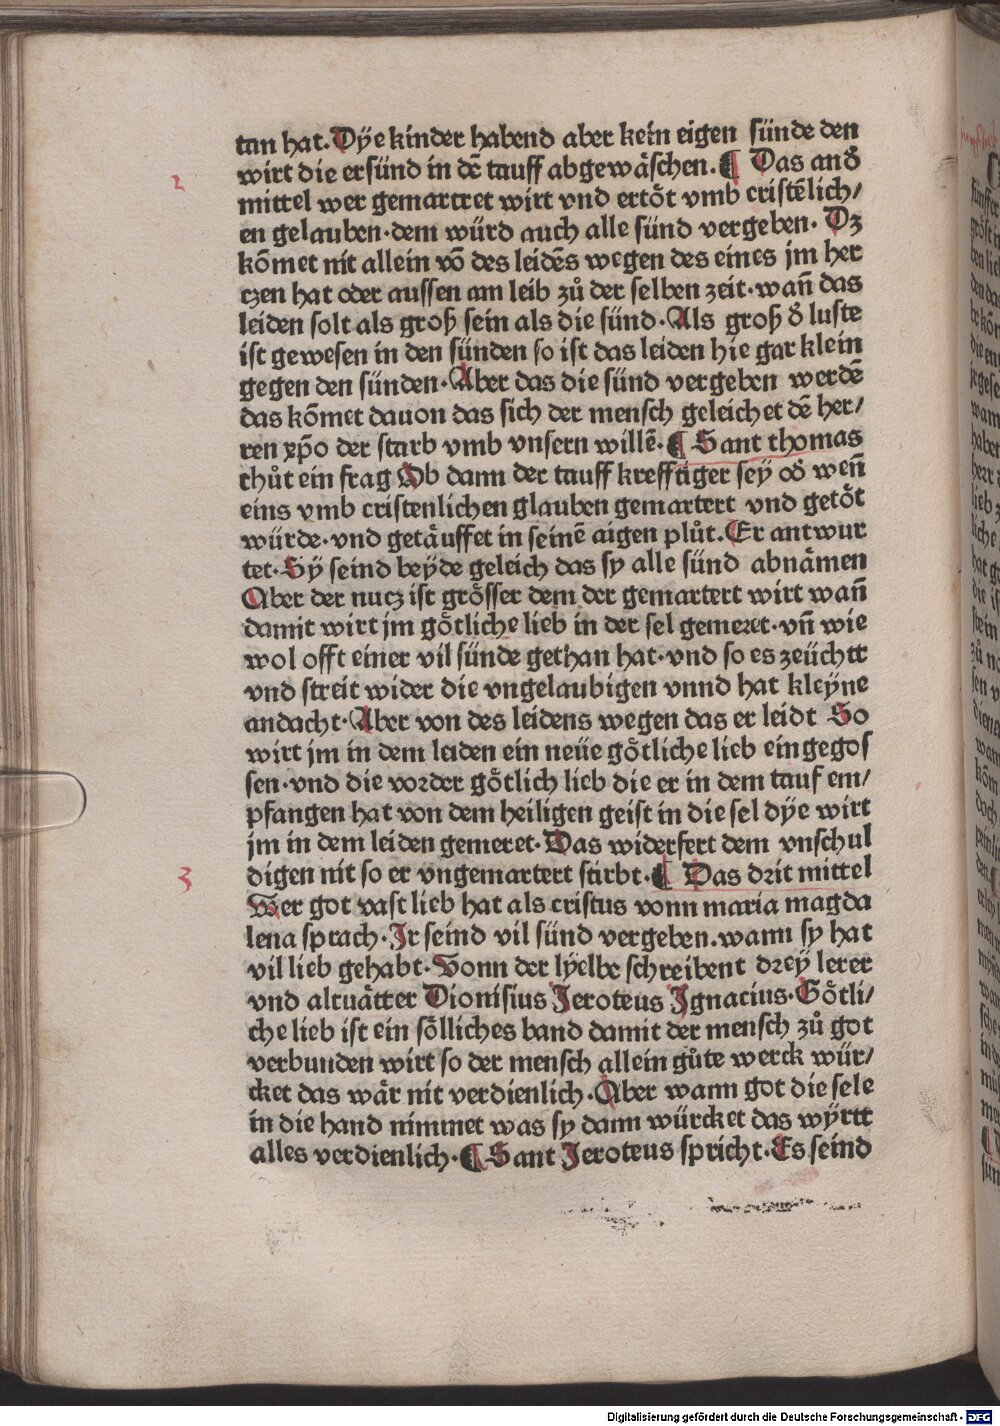 tan hat. Dÿe kinder habend aber kein eigen sünde den
wirt die ersünd in dē tauff abgewäschen. ¶ Das and̕
2
mittel wer gemartret wirt vnd ertöt vmb cristēlich/
en gelauben·dem würd auch alle sünd vergeben. Dz
kōmet nit allein vō des leidēs wegen des eines jm her
czen hat oder aussen am leib zů der selben zeit·wañ das
leiden solt als groß sein als die sünd. Als groß d̕ luste
ist gewesen in den sünden so ist das leiden hie gar klein
gegen den sünden·Aber das die sünd vergeben werdē
das kōmet dauon das sich der mensch geleichet dē her/
ren xp̄o der starb vmb vnsern willē. ¶ Sant thomas
thůt ein frag Ob dann der tauff krefftiger seÿ od̕ weñ
eins vmb cristenlichen glauben gemartert vnd getöt
würde·vnd getäuffet in seinē aigen plůt. Er antwur
tet· Sÿ seind beÿde geleich das sy alle sünd abnämen
Aber der nucz ist grösser dem der gemartert wirt wañ
damit wirt jm götliche lieb in der sel gemeret·vñ wie
wol offt einer vil sünde gethan hat·vnd so es zeüchtt
vnd streit wider die vngelaubigen vnnd hat kleÿne
andacht· Aber von des leidens wegen das er leidt So
wirt jm in dem leiden ein neüe götliche lieb eingegos
sen·vnd die vorder götlich lieb die er in dem tauf em/
pfangen hat von dem heiligen geist in die sel dÿe wirt
jm in dem leiden gemeret· Das widerfert dem vnschul
digen nit so er vngemartert stirbt. ¶ Das drit mittel
3
Wer got vast lieb hat als cristus vonn maria magda
lena sprach· Jr seind vil sünd vergeben.wann sy hat
vil lieb gehabt· Vonn der lÿelbe schreibent dreÿ lerer
vnd altuätter Dionisius Jeroteus Jgnacius· Götli/
che lieb ist ein sölliches band damit der mensch zů got
verbunden wirt so der mensch allein gůte werck wür/
cket das wär nit verdienlich· Aber wann got die sele
in die hand nimmet was sy dann würcket das wÿrtt
alles verdienlich· ¶ Sant Jeroteus spricht· Es seind
Digitalisierung gefördert durch die Deutsche Forschungsgemeinschaft - DFG